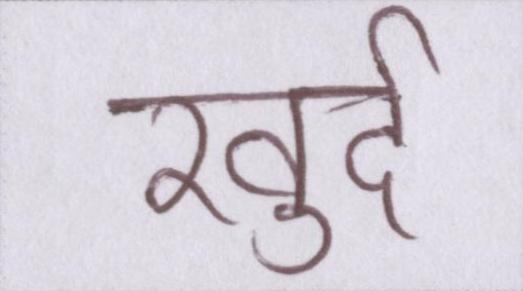 खुर्द